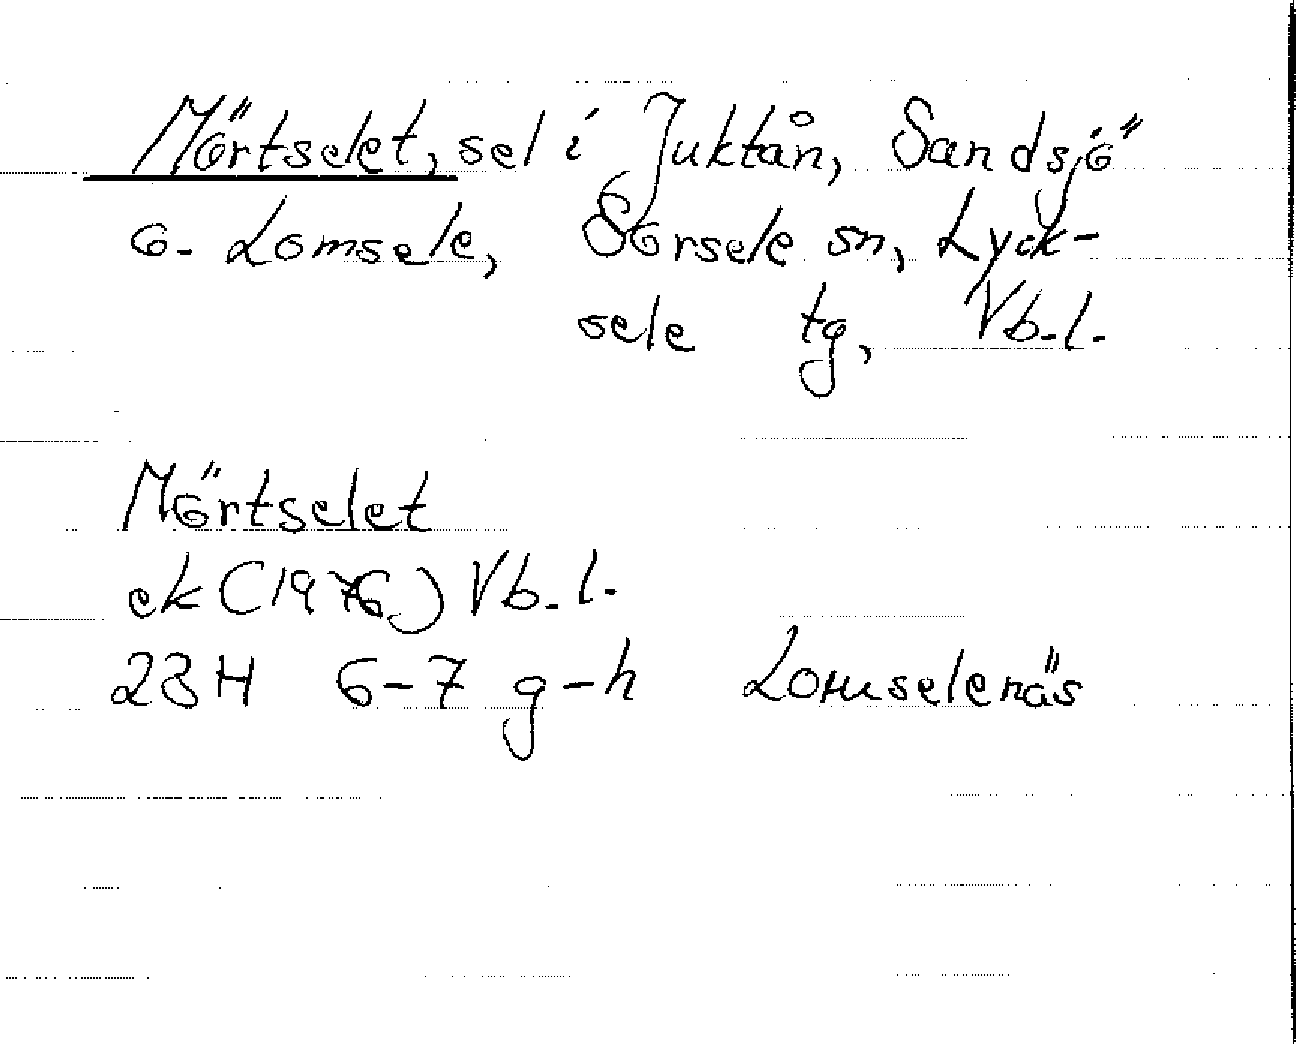 Mörtselet, sel i Juktån, Sandsjö
o. Lomsele, Sorsele sn, Lyck-
sele tg, Vb.l.
Mörtselet
ek (1976) Vb.l.
23H 6-7 g-h Lomselenäs